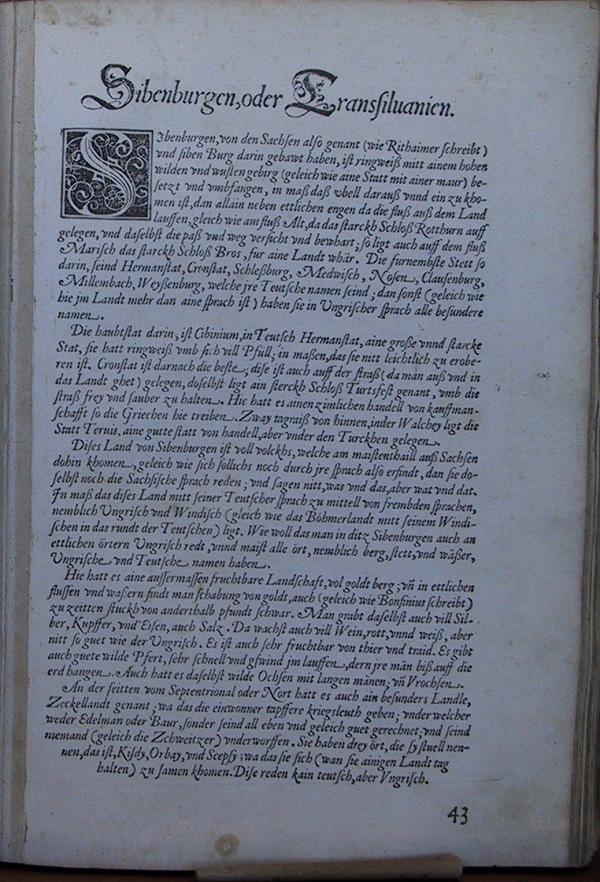 Sibenburgen, oder Transiluanien.
SIbenburgen, von den Sachsen also genant (wie Rithaimer schreibt)
vnd siben Burg darin gebawt haben, ist ringweiß mitt ainem hohen
wilden vnd wusten gebirg (geleich wie aine Statt mit ainer maur) be-
setzt vnd vmbfangen, in maß daß vbell darauß vnnd ein zu kho-
men ist, dan allain neben ettlichen engen da die fluß auß dem Land
lauffen, gleich wie am fluß Alt, da das starckh Schloß Rotthurn auff
gelegen, vnd daselbst die paß vnd weg versicht vnd bewhart; so ligt auch auff dem fluß
Marisch das starckh Schloß Bros, fur aine Landt whär. Die furnembste Stett so
darin, seind Hermanstat, Cronstat, Schleßburg, Medwisch, Nosen, Clausenburg,
Millembach, Weyßenburg, welche jre Teutsche namen seind; dan sonst (geleich wie
hie jm Landt mehr dan aine sprach ist) haben sie in Vngrischer sprach alle besundere
namen.
Die haubtstat darin, ist Cibinium, in Teutsch Hermanstat, aine große vnnd starcke
Stat, sie hatt ringweiß vmb sich vill Pfüll; in maßen, das sie nitt leichtlich zu erobe-
ren ist. Cronstat ist darnach die beste; dise ist auch auff der straß (da man auß vnd in
das Landt ghet) gelegen, doselbst ligt ain sterckh Schloß Turtsfest genant, vmb die
straß frey vnd sauber zu halten. Hie hatt es ainen zimlichen handell von kauffman-
schafft so die Griechen hie treiben. Zway tagraiß von hinnen, in der Walchey ligt die
Statt Teruis, aine gutte statt von handell, aber vnder den Turckhen gelegen.
Dises Land von Sibenburgen ist voll volckhs, welche am maistenthaill auß Sachsen
dohin khomen, geleich wie sich sollichs noch durch jre sprach also erfindt, dan sie do-
selbst noch die Sachsische sprach reden; vnd sagen nitt, was vnd das, aber wat vnd dat.
Jn maß das dises Land mitt seiner Teutscher sprach zu mittell von frembden sprachen,
nemblich Vngrisch vnd Windisch (gleich wie das Böhmerlandt mitt seinem Windi-
schen in das rundt der Teutschen) ligt. Wie woll das man in ditz Sibenburgen auch an
ettlichen örtern Vngrisch redt, vnnd maist alle ört, nemblich berg, stett, vnd wäßer,
Vngrische vnd Teutsche namen haben.
Hie hatt es aine aussermassen fruchtbare Landschaft, vol goldt berg; vñ in ettlichen
flussen vnd wassern findt man schabung von goldt, auch (geleich wie Bonfinius schreibt)
zu zeitten stuckh von anderthalb pfundt schwar. Man grabt daselbst auch vill Sil-
ber, Kupffer, vnd Eisen, auch Salz. Da wachst auch vill Wein, rott, vnnd weiß, aber
nitt so guet wie der Vngrisch. Es ist auch sehr fruchtbar von thier vnd traid. Es gibt
auch guete wilde Pfert, sehr schnell vnd gswind jm lauffen, dern jre män biß auff die
erd hangen. Auch hatt es daselbst wilde Ochsen mit langen mänen; vñ Vrochsen.
An der seitten vom Septentrional oder Nort hatt es auch ain besunders Landle,
Zeckellandt genant; wa das die einwonner tapffere kriegsleuth geben; vnder welcher
weder Edelman oder Baur, sonder seind all eben vnd geleich guet gerechnet, vnd seind
niemand (geleich die Zchweitzer) vnderworffen. Sie haben drey ört, die sy stuell nen-
nen, das ist, Kisdy, Orbay, vnd Scepsy; wa das sie sich (wan sie ainigen Landt tag
halten) zu samen khomen. Dise reden kain teutsch, aber Vngrisch.
43